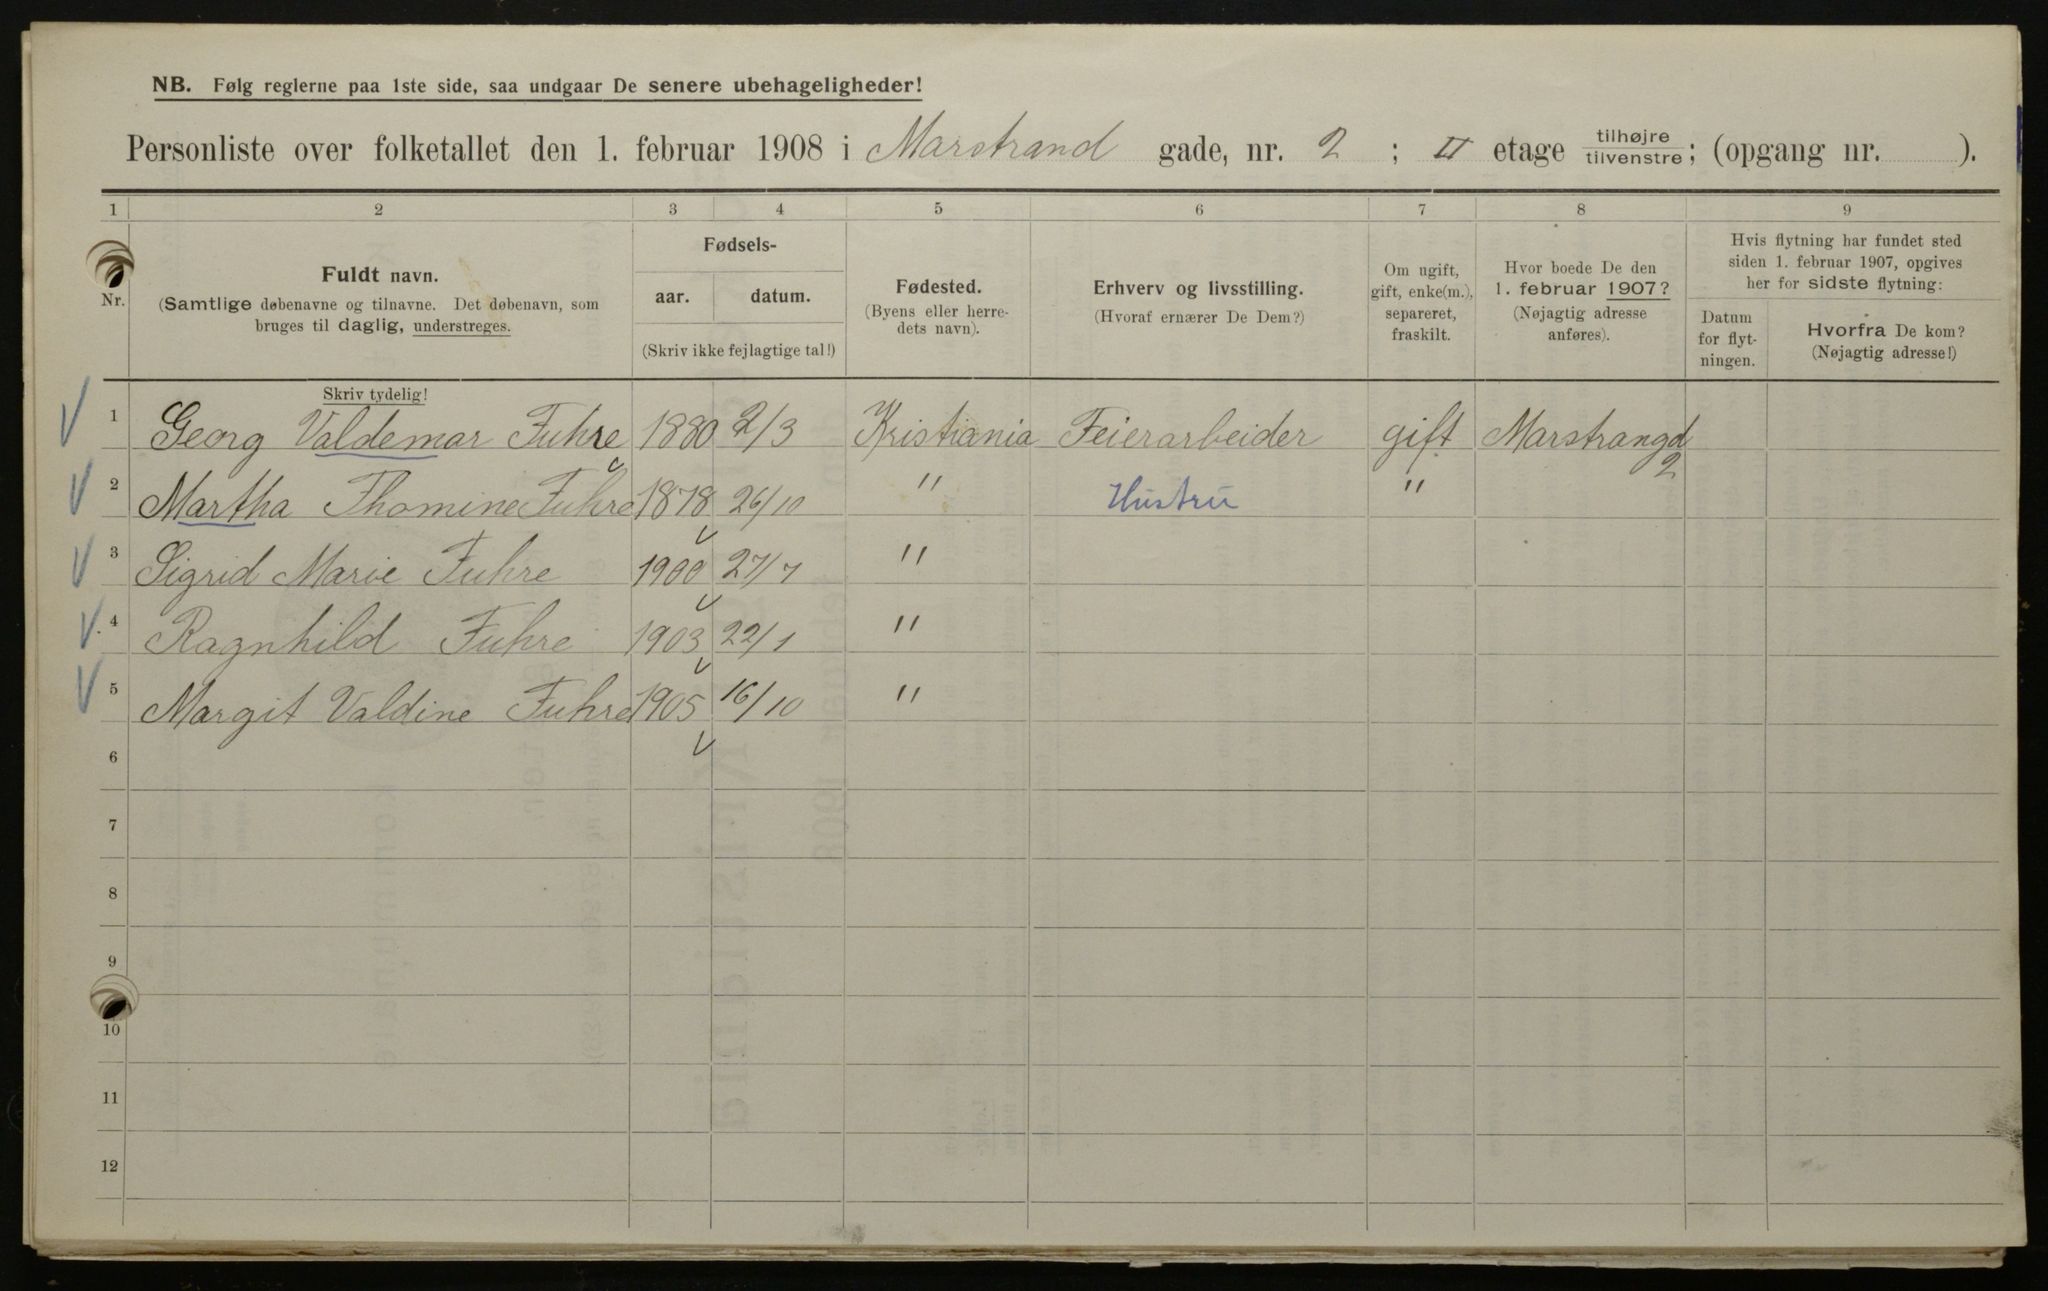 NB. Følg reglerne paa 1ste side, saa undgaar De senere ubehageligheder!
Personliste over folketallet den 1. februar 1908 i Marstrand gade, nr. 2 ; II etage tilhøjre tilvenstre; (opgang nr. ).
1 2 3 4 5 6 7 8 9
Nr.
Fuldt navn.
(Samtlige døbenavne og tilnavne. Det døbenavn, som
bruges til daglig, understreges.
Fødsels-
aar. datum.
(Skriv ikke fejlagtige tal!)
Fødested.
(Byens eller herre-
dets navn).
Erhverv og livsstilling.
(Hvoraf ernærer De Dem?)
Om ugift,
gift, enke(m.),
separeret,
fraskilt.
Hvor boede De den
1. februar 1907?
(Nøjagtig adresse
anføres).
Hvis flytning har fundet sted
siden 1. februar 1907, opgives
her for sidste flytning:
Datum
for flyt-
ningen.
Hvorfra De kom?
(Nøjagtig adresse!)
Skriv tydelig!
1 Georg Valdemar Fuhre 1880 2/3 Kristiania Feierarbeider gift Marstrangd
2
2 Martha Thomine Fuhre 1878 26/10 " Hustru "
3 Sigrid Marie Fuhre 1900 27/7 "
4 Ragnhild Fuhre 1903 22/1 "
5 Margit Valdine Fuhre 1905 16/10 "
6
7
8
9
10
11
12